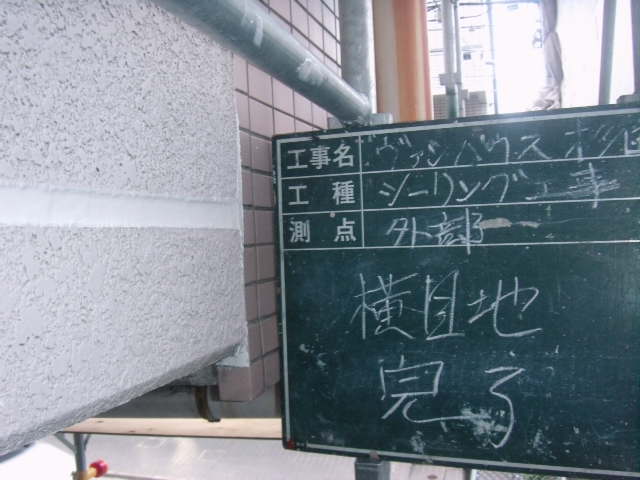 工事名 ヴァンハウス杉田
工種 シーリング工事
測点 外部
横目地
完了